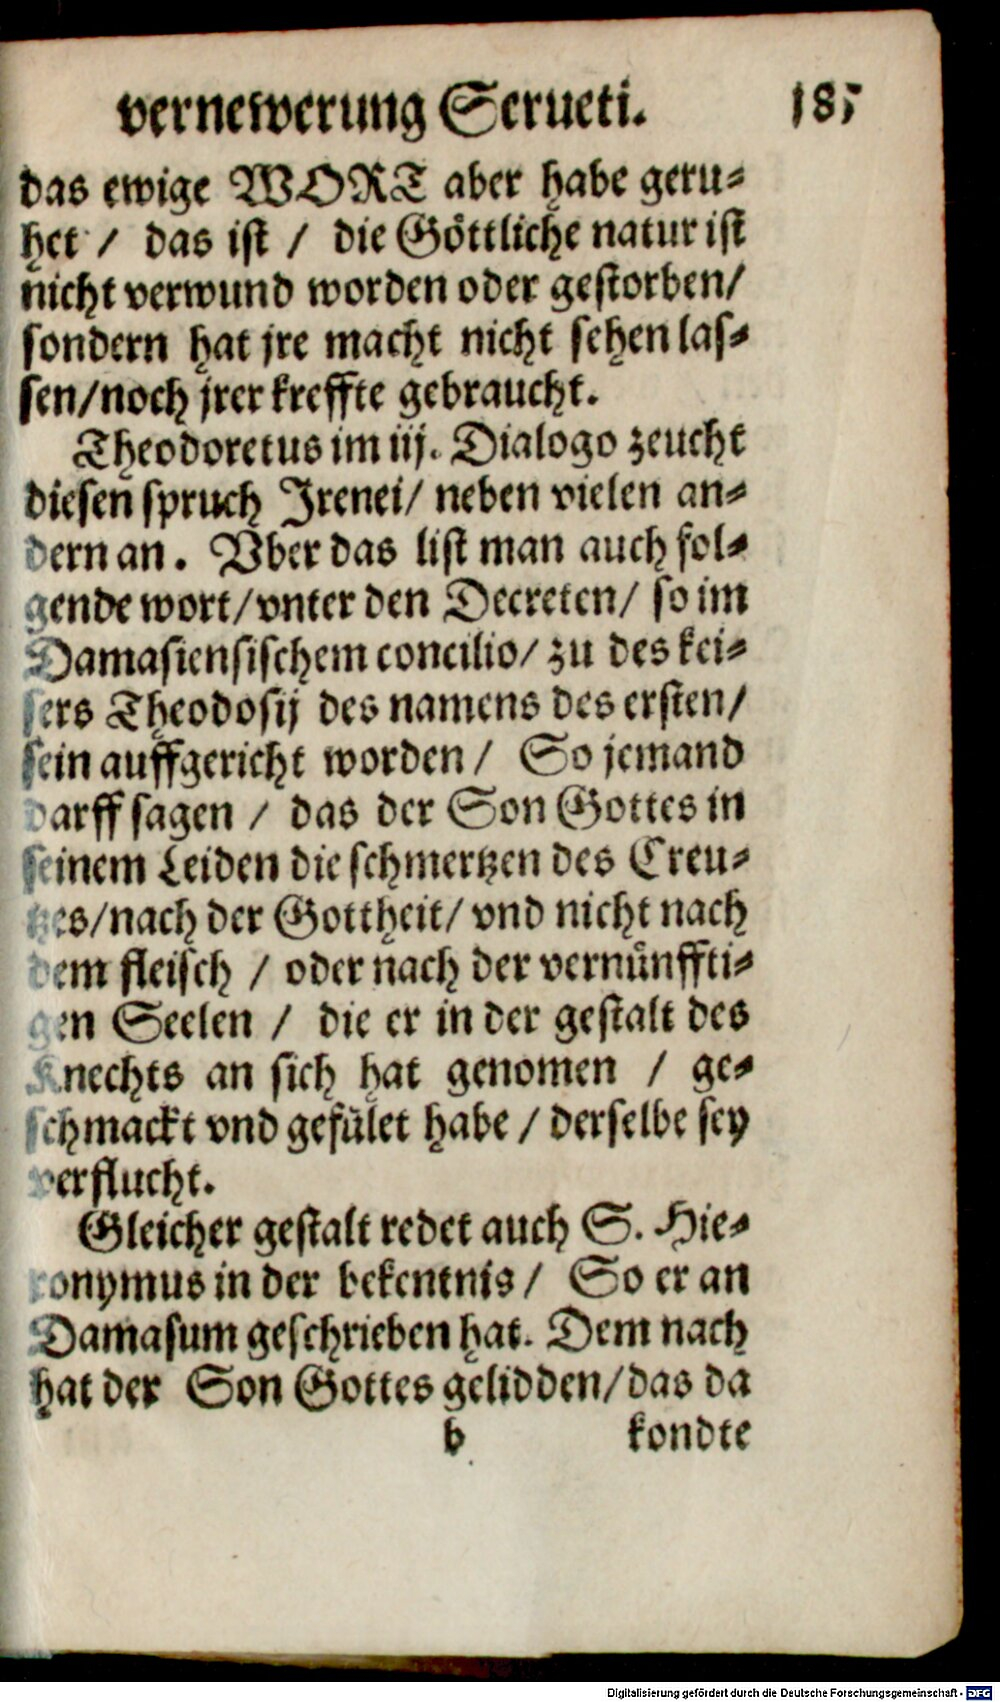 vernewerung Serueti. 185
das ewige WORT aber habe geru-
het / das ist / die Göttliche natur ist
nicht verwund worden oder gestorben/
sondern hat jre macht nicht sehen las-
sen/noch jrer kreffte gebraucht.
Theodoretus im iij. Dialogo zeucht
diesen spruch Jrenei/ neben vielen an-
dern an. Vber das list man auch fol-
gende wort/vnter den Decreten/ so im
Damasiensischem concilio/ zu des kei-
sers Theodosij des namens des ersten/
sein auffgericht worden / So jemand
darff sagen / das der Son Gottes in
seinem Leiden die schmertzen des Creu-
tzes/nach der Gottheit/ vnd nicht nach
dem fleisch / oder nach der vernünffti-
gen Seelen / die er in der gestalt des
Knechts an sich hat genomen / ge-
schmackt vnd gefület habe / derselbe sey
verflucht.
Gleicher gestalt redet auch S. Hie-
ronymus in der bekentnis / So er an
Damasum geschrieben hat. Dem nach
hat der Son Gottes gelidden/das da
b kondte
Digitalisierung gefördert durch die Deutsche Forschungsgemeinschaft - DFG